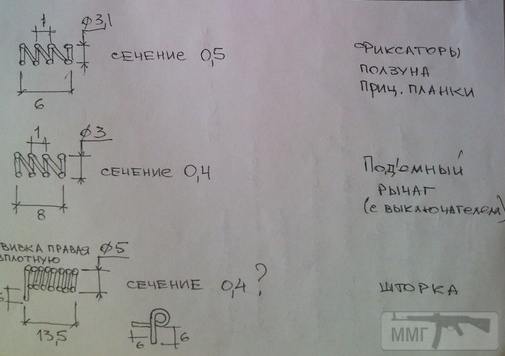 1 ф3,1
СЕЧЕНИЕ 0,5
6
ФИКСАТОРЫ
ПОЛЗУНА
ПРИЦ. ПЛАНКИ
1 ф3
СЕЧЕНИЕ 0,4
8
ПОД'ЕМНЫЙ
РЫЧАГ
(С ВЫКЛЮЧАТЕЛЕМ)
ВИВКА ПРАВАЯ
ВПЛОТНУЮ
ф5
СЕЧЕНИЕ 0,4?
13,5
6 6
ШТОРКА
ММГ